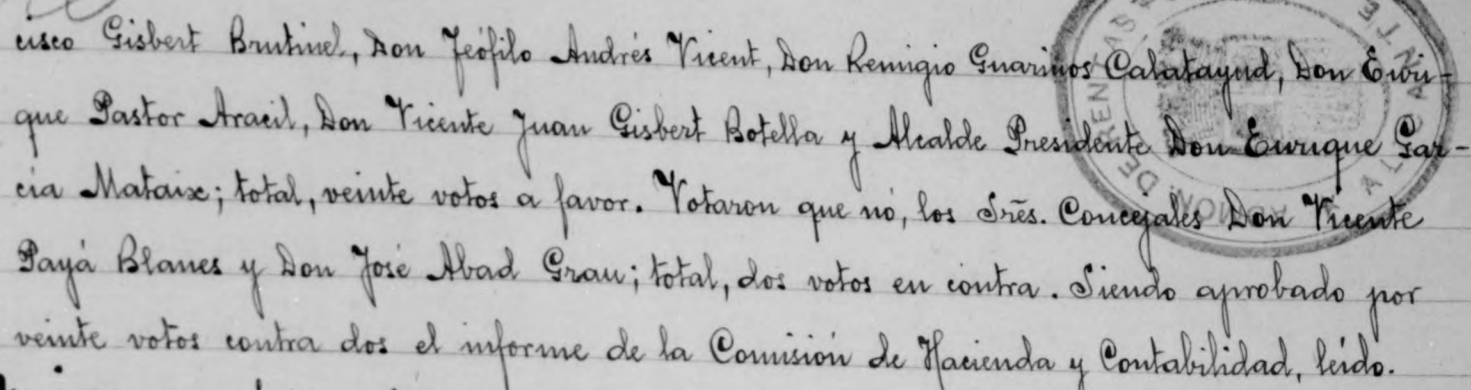 cisco Gisbert Brutinel, Don Teófilo Andrés Vicent, Don Remigio Guarinos Calatayud, Don Enri-
que Pastor Aracil, Don Vicente Juan Gisbert Botella y Alcalde Presidente Don Enrique Gar-
cia Mataix; total, veinte votos a favor. Votaron que nó, los Srēs. Concejales Don Vicente
Payá Blanes y Don José Abad Grau; total, dos votos en contra. Siendo aprobado por
veinte votos contra dos el informe de la Comisión de Hacienda y Contabilidad, leído.